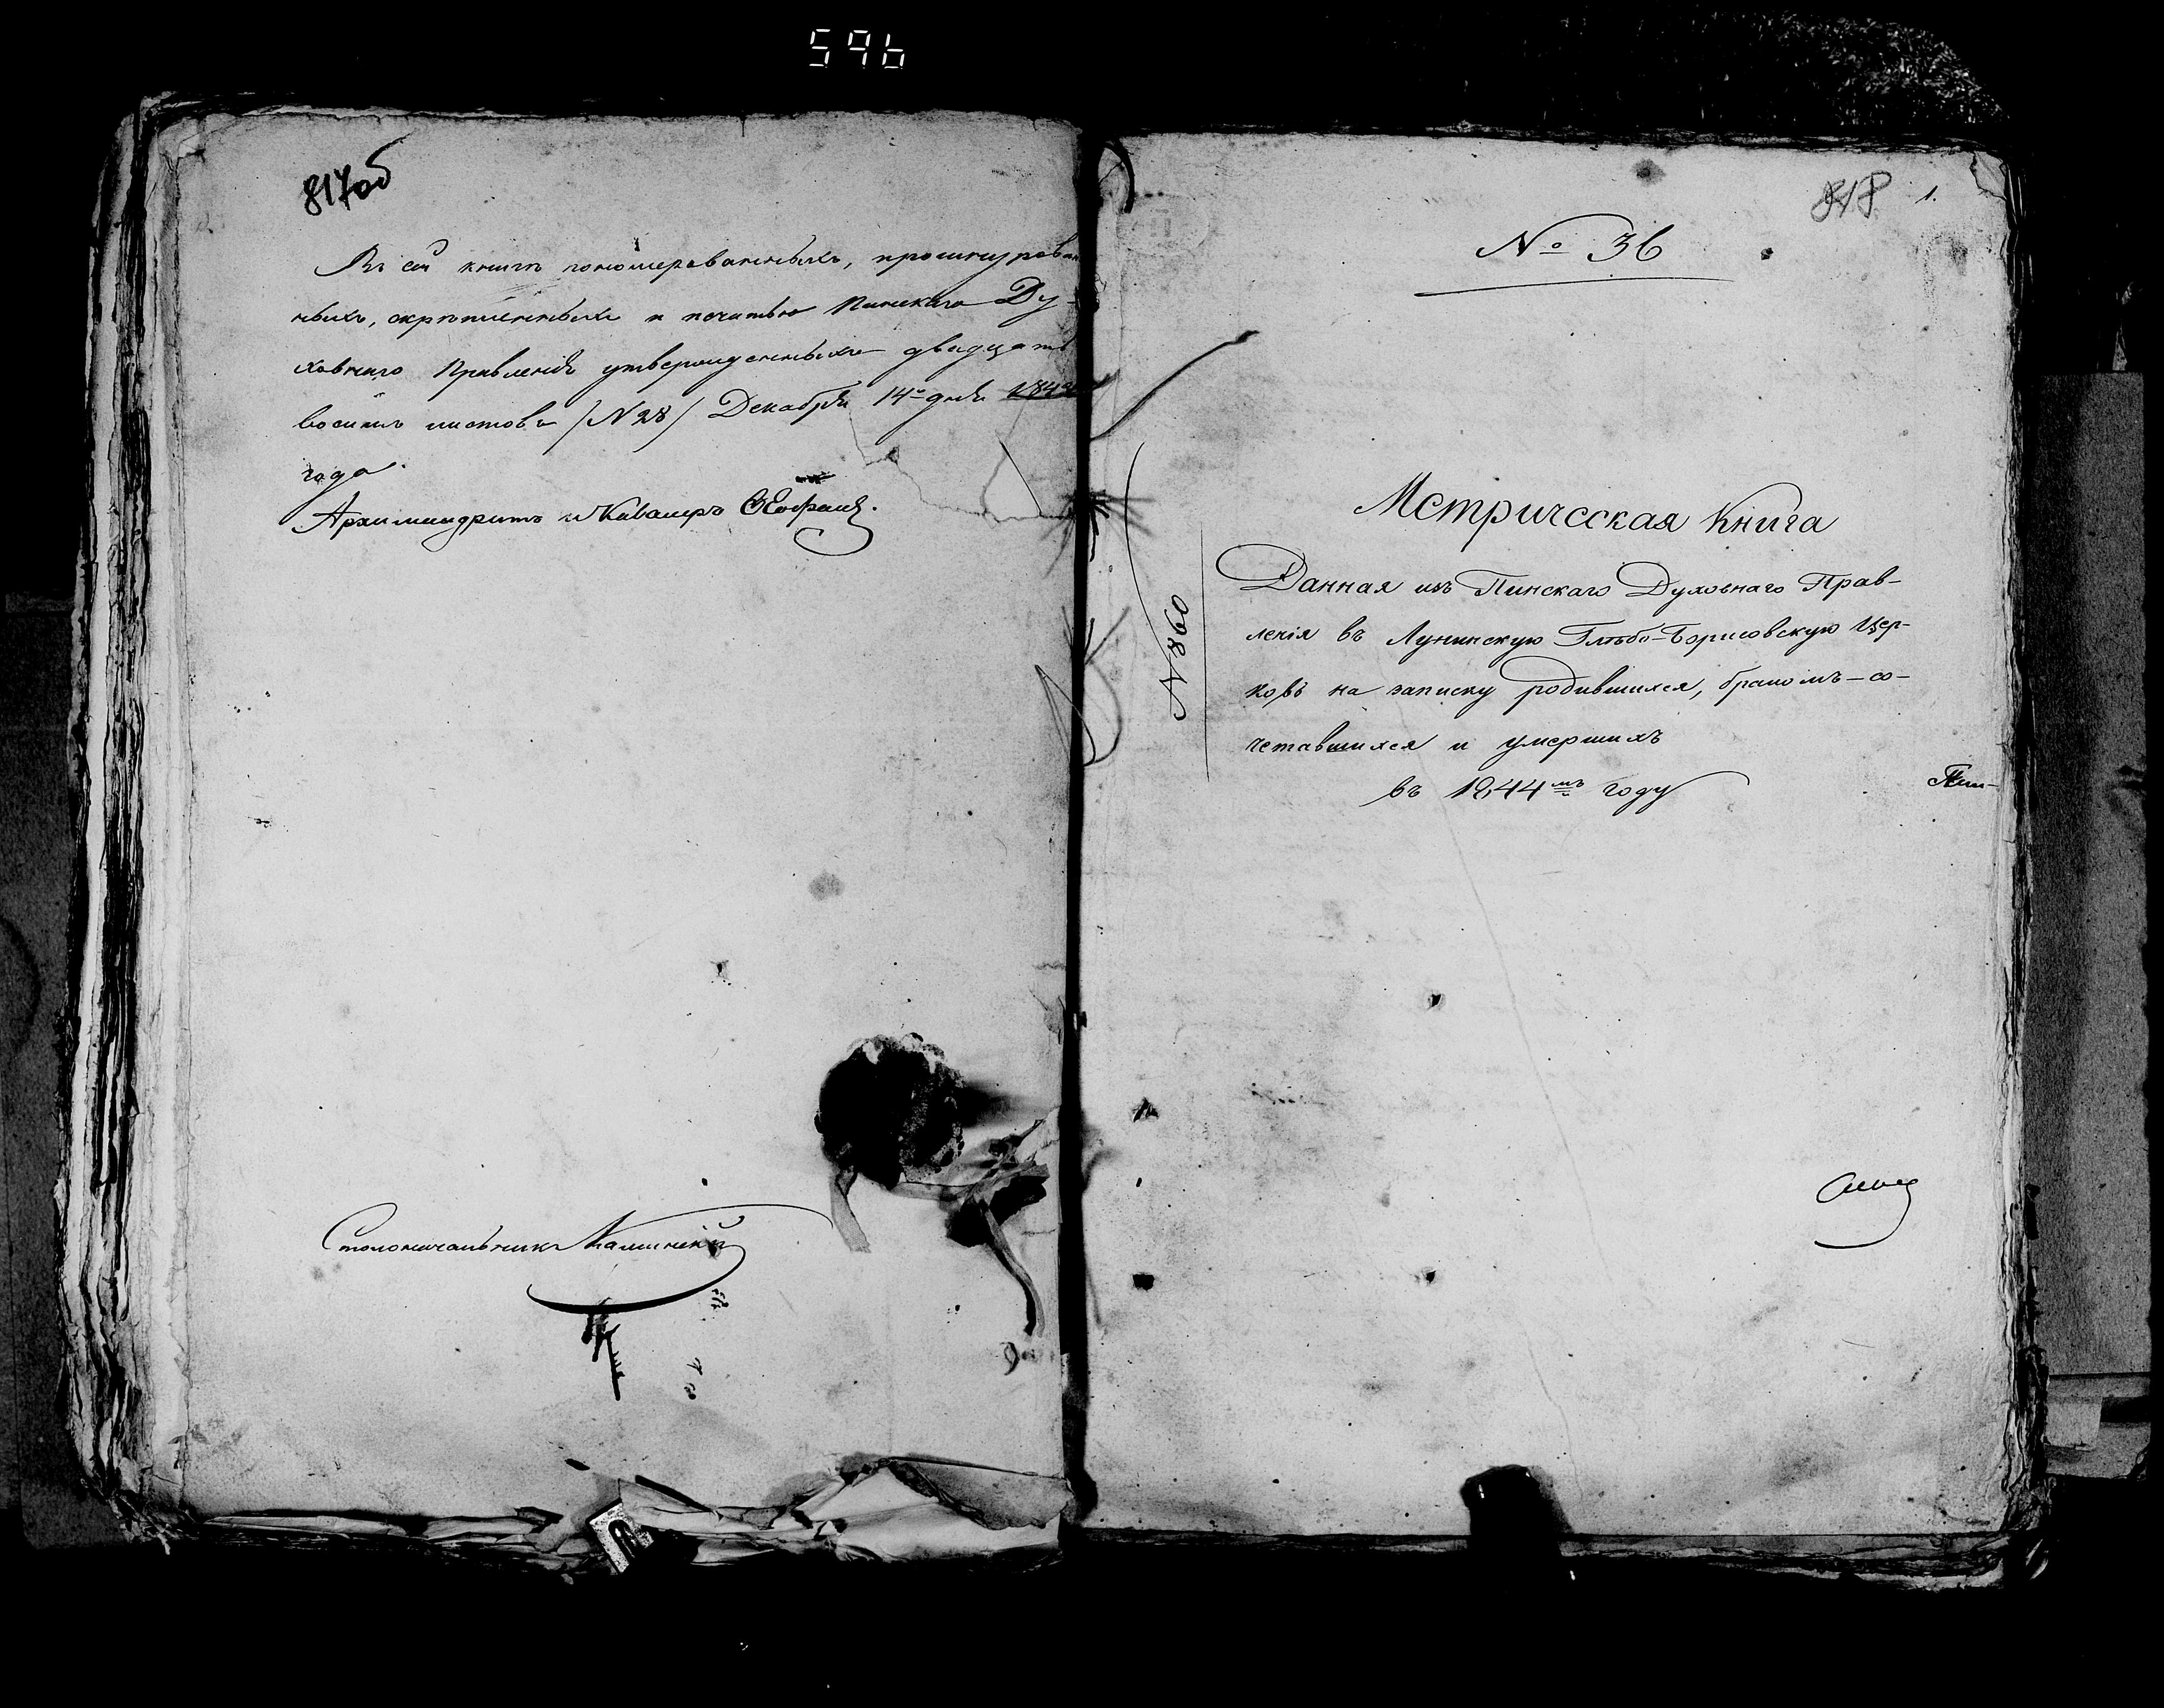 596
817об
Въ сей книгѣ пономерованныхъ, прошнурован
ныхъ, скрѣпленныхъ и печатью Пинскаго Ду-
ховнаго Правленія утвержденныхъ двадцать
восемь листовъ /N 28/ Декабря 14го дня 1843
года.
Архимандритъ и Кавалеръ
Столоначальникъ
818 1.
№ 36
Метрическая Книга
N 860
Данная изъ Пинскаго Духовнаго Прав-
ленія въ Лунинскую Глѣбо-Борисовскую Цер-
ковь на записку родившихся, бракомъ-со-
четавшихся и умершихъ
въ 1844мъ году